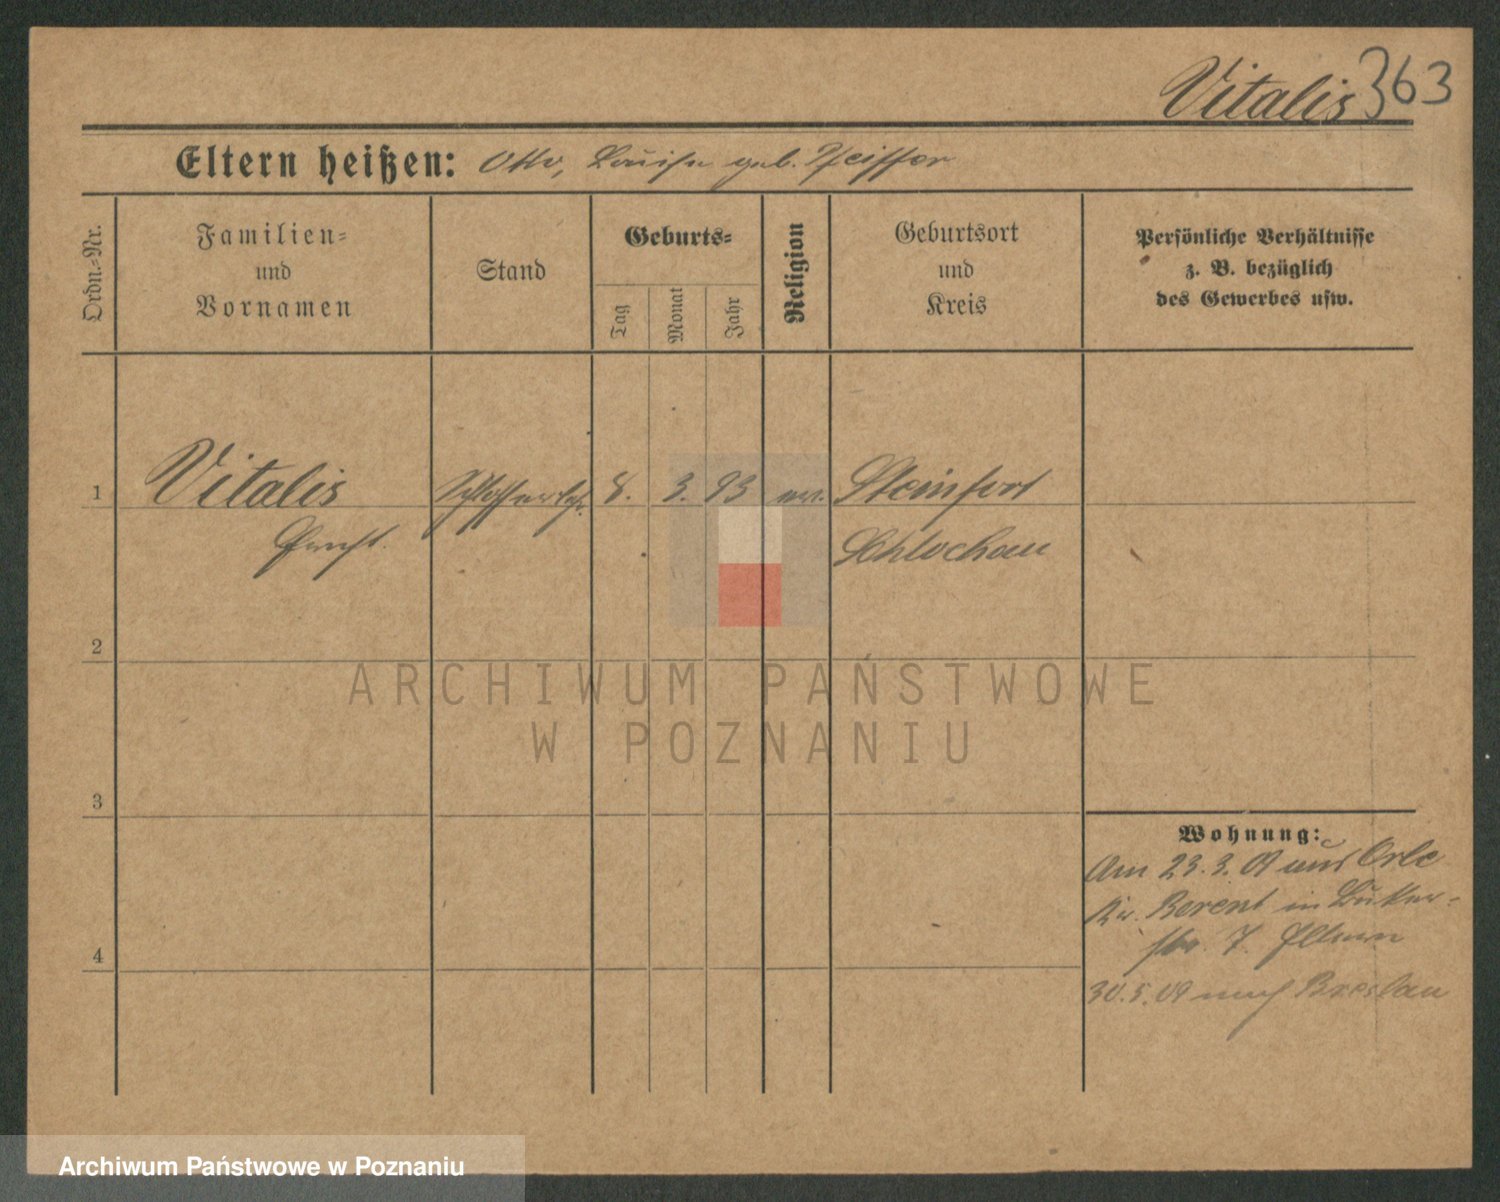 Vitalis 363
Eltern heißen: Otto, Louise geb. Pfeiffer
Ordn.-Nr.
Familien-
und
Vornamen
Stand
Geburts-
Tag
Monat
Jahr
Religion
Geburtsort
und
Kreis
Persönliche Verhältnisse
z. B. bezüglich
des Gewerbes usw.
1 Vitalis Schlosserlehr. 8. 3. 93 ev. Steinfort
Schlochau
2
3
4
Wohnung:
Am 23.3.09 aus Orle
Kr. Berent in
str. 7. Eltern
30.5.09 nach Breslau
ARCHIWUM PAŃSTWOWE
W POZNANIU
Archiwum Państwowe w Poznaniu